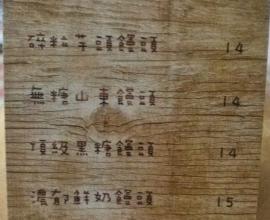 碎粒芋頭饅頭 14
無糖山東饅頭 14
頂級黑糖饅頭 14
濃郁鮮奶饅頭 15